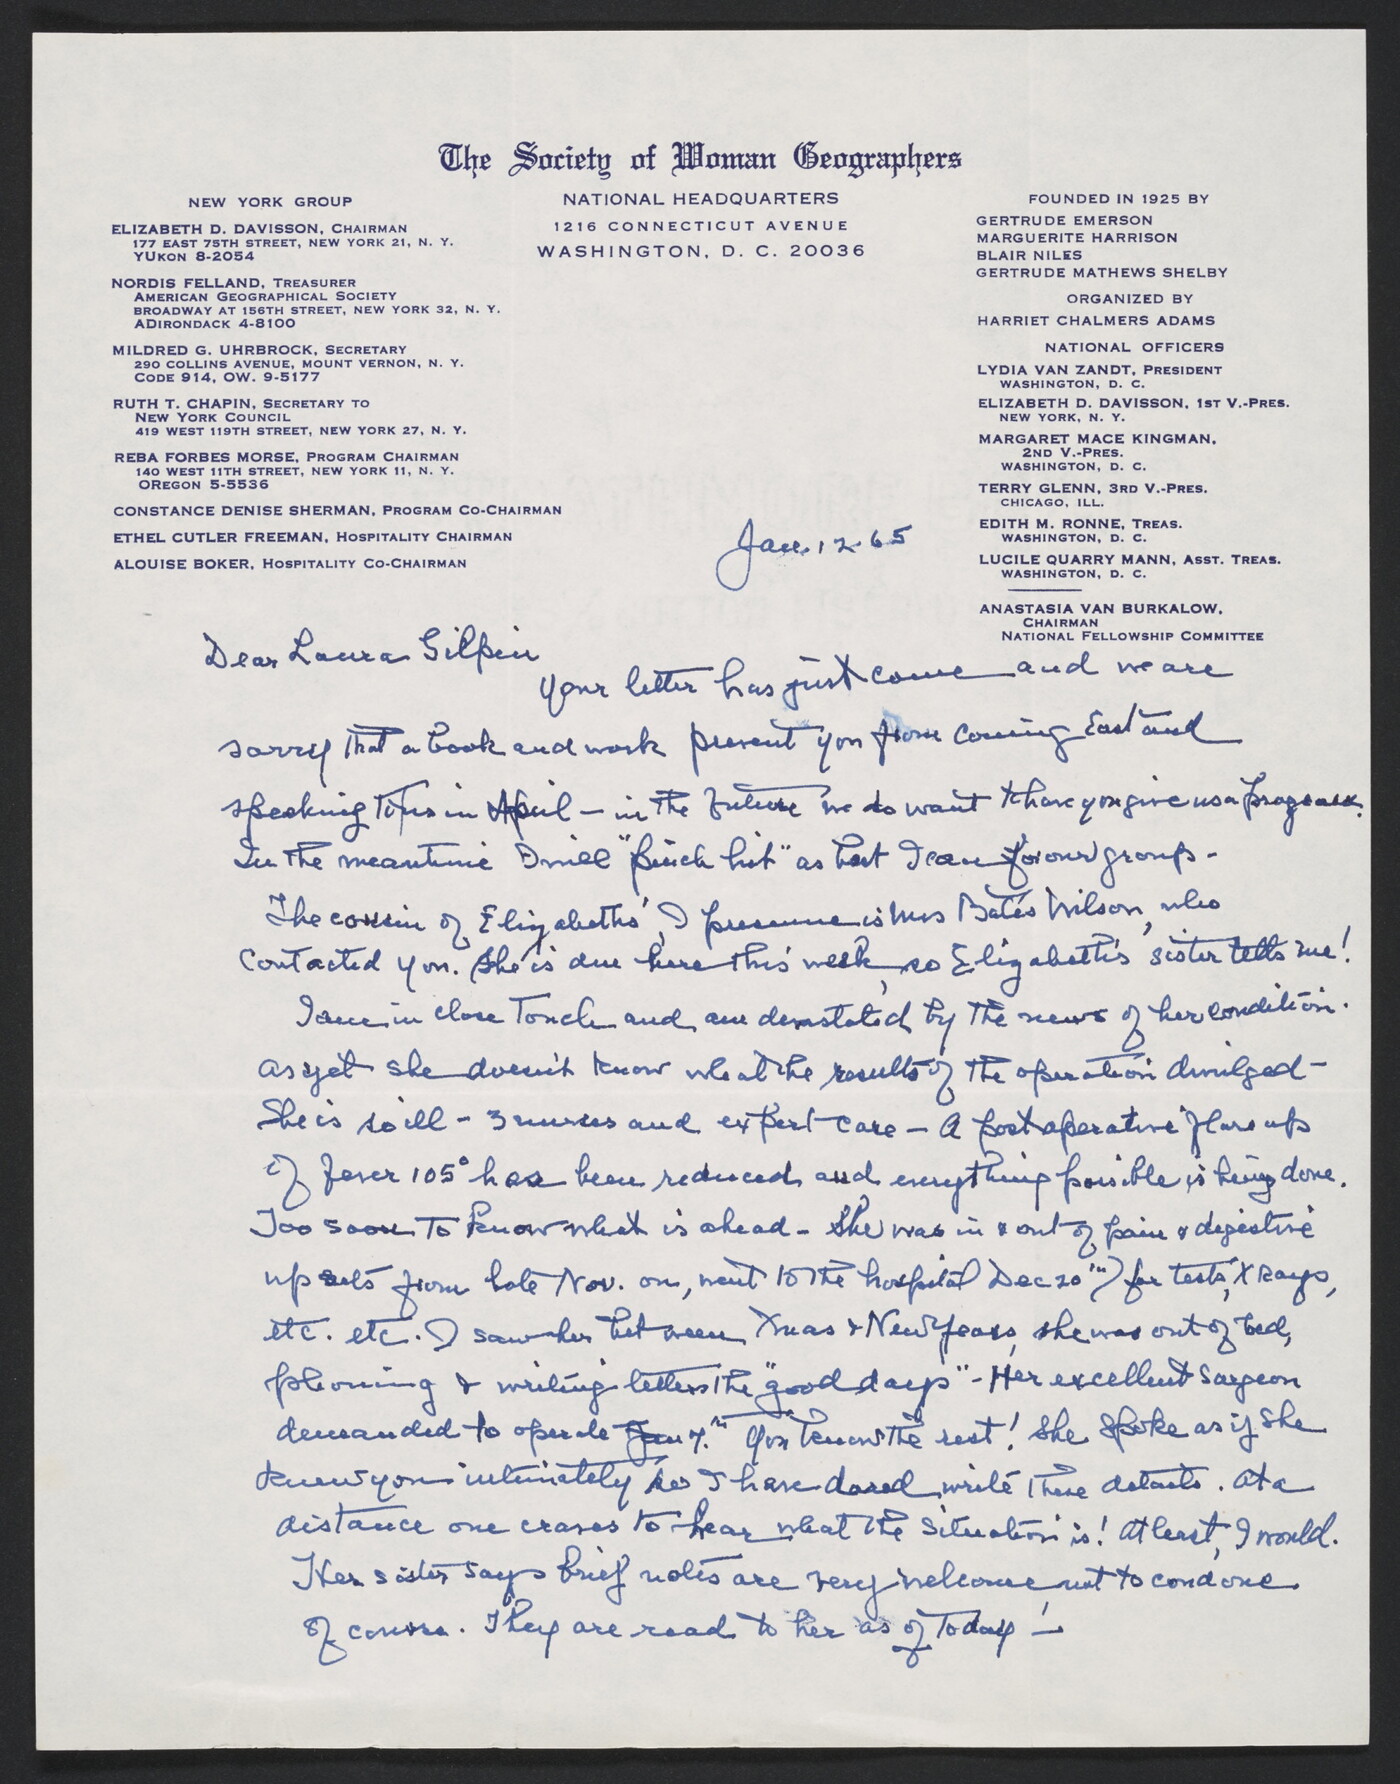 The Society of Woman Geographers
NEW YORK GROUP
ELIZABETH D. DAVISSON, CHAIRMAN
177 EAST 75TH STREET, NEW YORK 21, N. Y.
YUKON 8-2054
NORDIS FELLAND, TREASURER
AMERICAN GEOGRAPHICAL SOCIETY
BROADWAY AT 156TH STREET, NEW YORK 32, N. Y.
ADIRONDACK 4-8100
MILDRED G. UHRBROCK, SECRETARY
290 COLLINS AVENUE, MOUNT VERNON, N. Y.
CODE 914, OW. 9-5177
RUTH T. CHAPIN, SECRETARY TO
NEW YORK COUNCIL
419 WEST 119TH STREET, NEW YORK 27, N. Y.
REBA FORBES MORSE, PROGRAM CHAIRMAN
140 WEST 11TH STREET, NEW YORK 11, N. Y.
OREGON 5-5536
CONSTANCE DENISE SHERMAN, PROGRAM CO-CHAIRMAN
ETHEL CUTLER FREEMAN, HOSPITALITY CHAIRMAN
ALOUISE BOKER, HOSPITALITY CO-CHAIRMAN
NATIONAL HEADQUARTERS
1216 CONNECTICUT AVENUE
WASHINGTON, D. C. 20036
FOUNDED IN 1925 BY
GERTRUDE EMERSON
MARGUERITE HARRISON
BLAIR NILES
GERTRUDE MATHEWS SHELBY
ORGANIZED BY
HARRIET CHALMERS ADAMS
NATIONAL OFFICERS
LYDIA VAN ZANDT, PRESIDENT
WASHINGTON, D. C.
ELIZABETH D. DAVISSON, 1ST V.-PRES.
NEW YORK, N. Y.
MARGARET MACE KINGMAN,
2ND V.-PRES.
WASHINGTON, D. C.
TERRY GLENN, 3RD V.-PRES.
CHICAGO, ILL.
EDITH M. RONNE, TREAS.
WASHINGTON, D. C.
LUCILE QUARRY MANN, ASST. TREAS.
WASHINGTON, D. C.
ANASTASIA VAN BURKALOW,
CHAIRMAN
NATIONAL FELLOWSHIP COMMITTEE
Jan. 12-65
Dear Laura Gilpin
Your letter has just come and we are
sorry that a book and work prevent you from coming East and
speaking to us in April - in the future we do want to have you give us a program.
In the meantime I will "pinch hit" as best I can for our group -
The cousin of Elizabeths', I presume is Mrs Bates Wilson, who
contacted you. She is due here this week, so Elizabeth's sister tells me!
I am in close touch and am devastated by the news of her condition.
As yet she doesn't know what the results of the operation divulged -
She is so ill - 3 nurses and expert care - A post operative flare up
of fever 105° has been reduced and everything possible is being done.
Too soon to know what is ahead - She was in & out of pain & digestive
upsets from late Nov. on, went to the hospital Dec 20th) for tests, X Rays,
etc. etc. I saw her between Xmas & New Years, she was out of bed,
phoning & writing letters the "good days" - Her excellent surgeon
demanded to operate Jan 7.th You know the rest! She spoke as if she
knew you intimately so I have dared write these details. At a
distance one craves to hear what the situation is! At least, I would.
Her sister says brief notes are very welcome not to condone
of course. They are read to her as of today!-